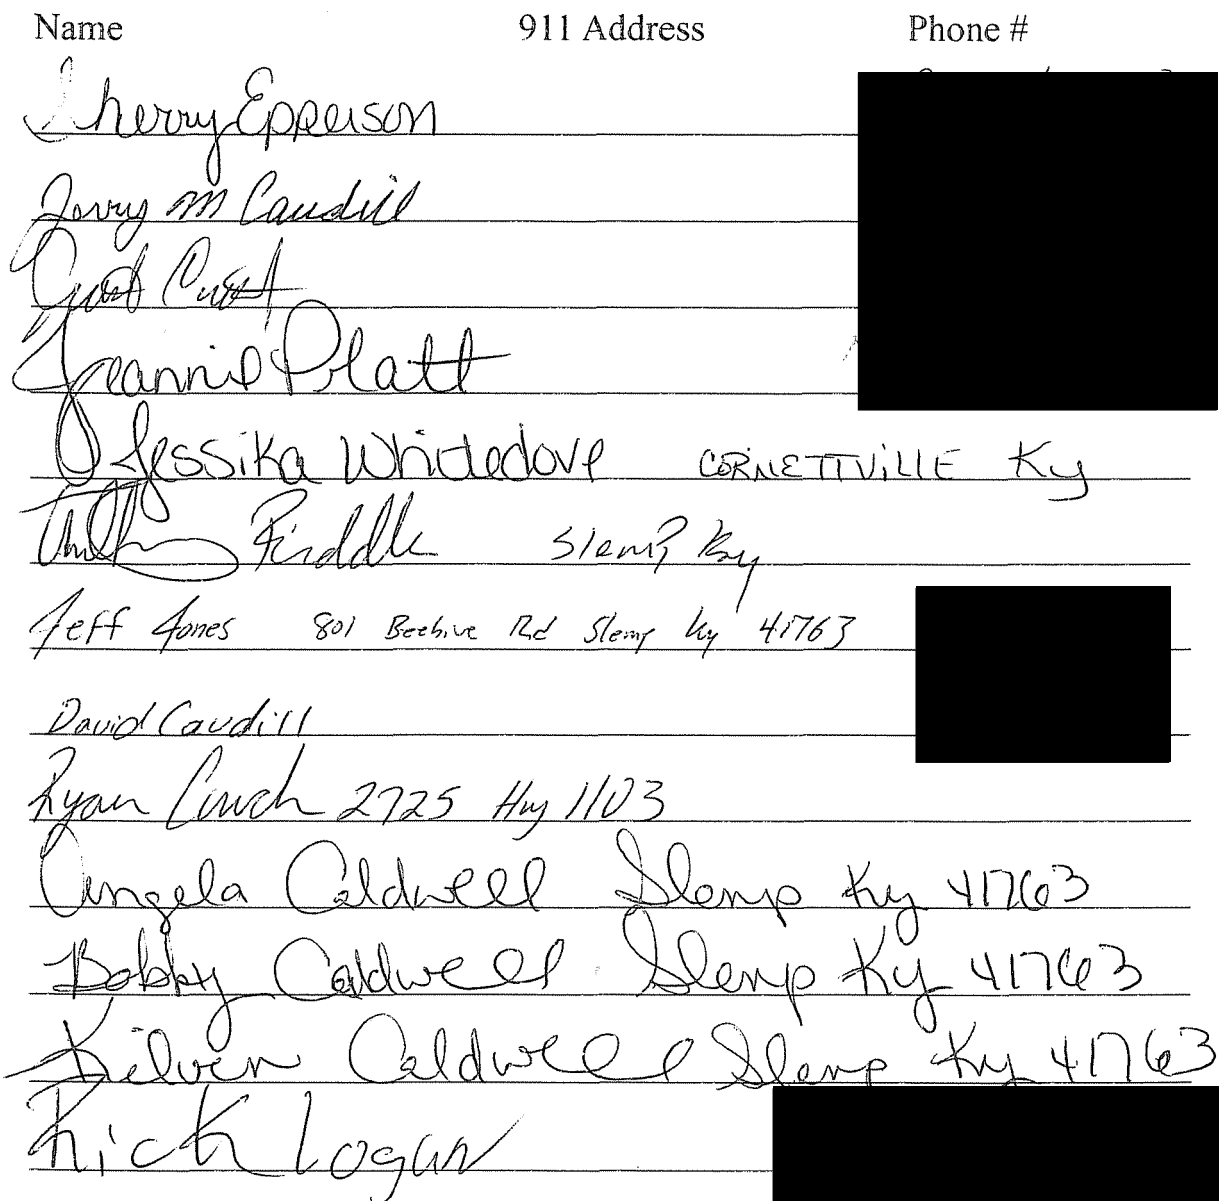 Name 911 Address Phone #
Sherry Epperson
Jerry M Caudill
Jeannie Pratt
Jessika Whitedove CORNETTVILLE Ky
Slemp Ky
Jeff Jones 801 Beehive Rd Slemp Ky 41763
David Caudill
Ryan Couch 2725 Hwy 1103
Angela Caldwell Slemp Ky 41763
Bobby Caldwell Slemp Ky 41763
Caldwell Slemp Ky 41763
Rick Logan